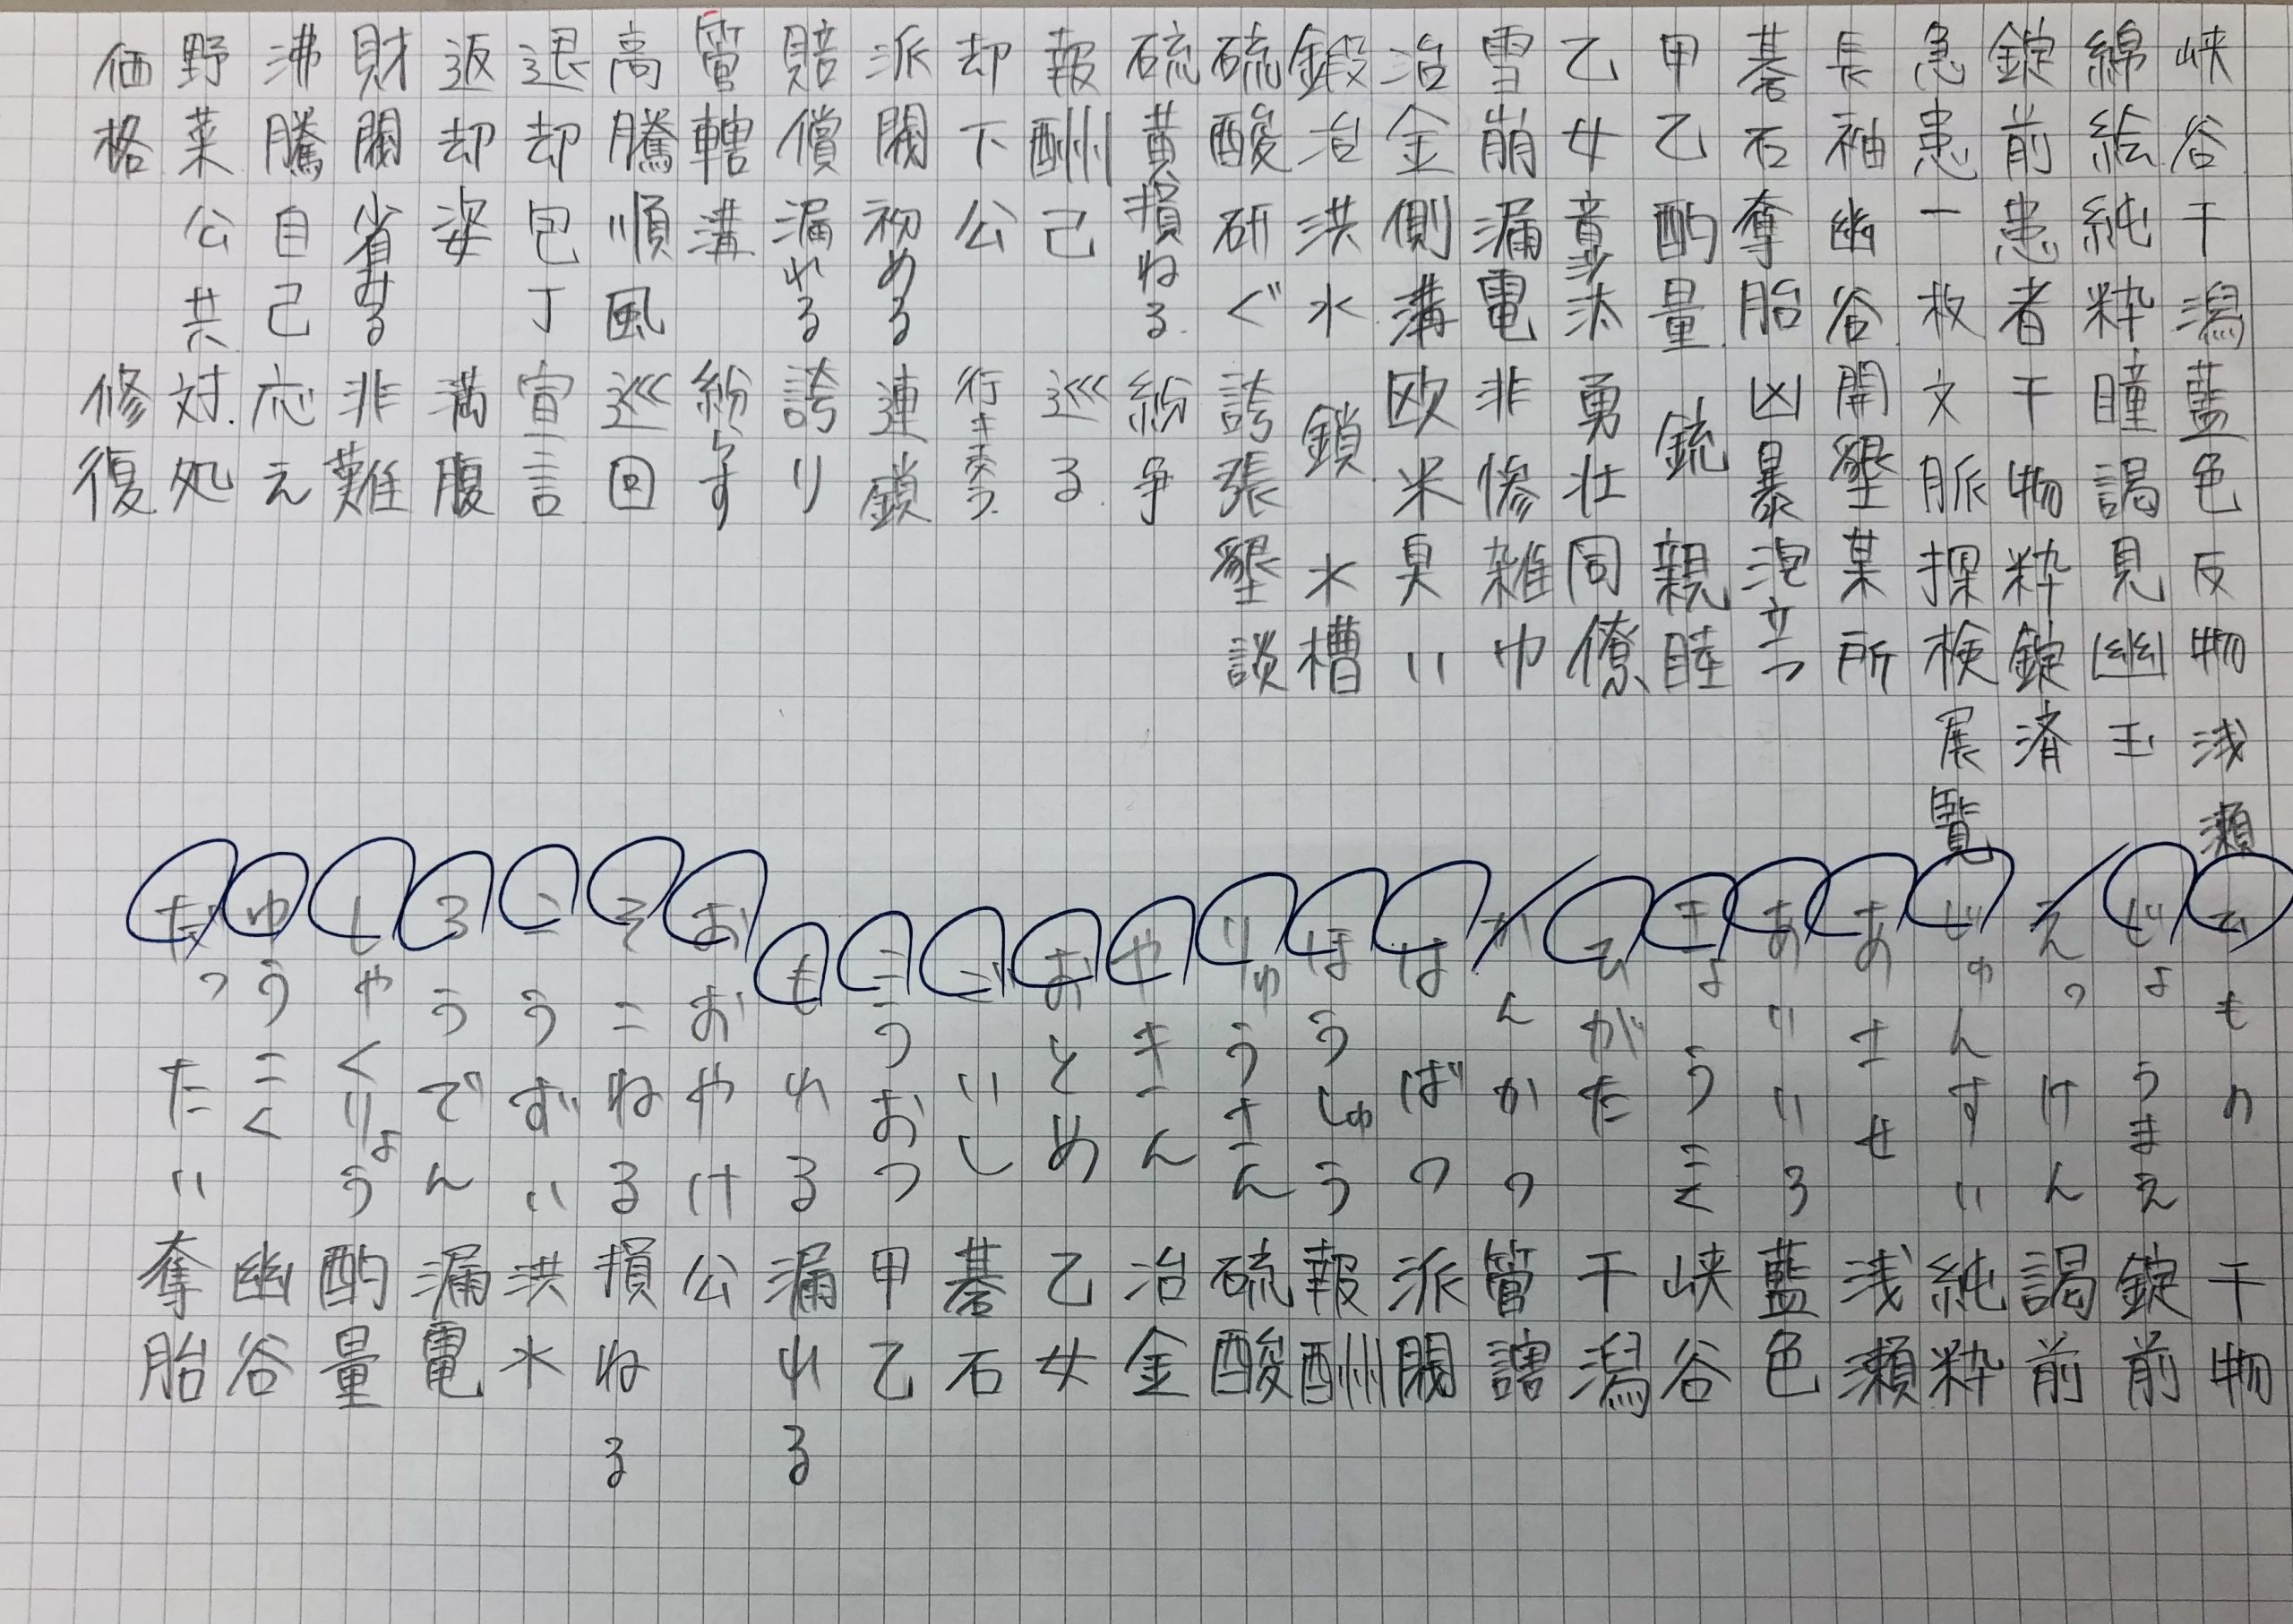 峡谷干潟藍色反物浅瀬
綿絵純粋瞳謁見幽玉
錠前患者干物粋錠済
急患一枚文脈探検展覧
長袖幽谷開墾某所
碁石奪胎凶暴泡立つ
甲乙酌量銃親睦
乙女音沙汰勇壮同僚
雪崩漏電非惨雑巾
冶金側溝欧米臭い
鍛冶洪水鎖水槽
硫酸研ぐ誇張墾談
硫黄損ねる紛争
報酬己巡る
却下公行き
派閥初める連鎖
賠償漏れる誇り
管轄溝紛らす
高騰順風巡回
退却包丁宣言
返却姿満腹
財閥省みる非難
沸騰自己応え
野菜公共対処
価格修復
ひもの干物
じょうまえ錠前
えっけん謁前
じゅんすい純粋
あさせ浅瀬
あいいろ藍色
きょうこく峡谷
ひがた干潟
かんかつ管
はばつ派閥
ほうしゅう報酬
りゅうさん硫酸
やきん冶金
おとめ乙女
ごいし碁石
こうおつ甲乙
もれる漏れる
おおやけ公
そこねる損ねる
こうずい洪水
ろうでん漏電
しゃくりょう酌量
ゆうこく幽谷
だったい奪胎